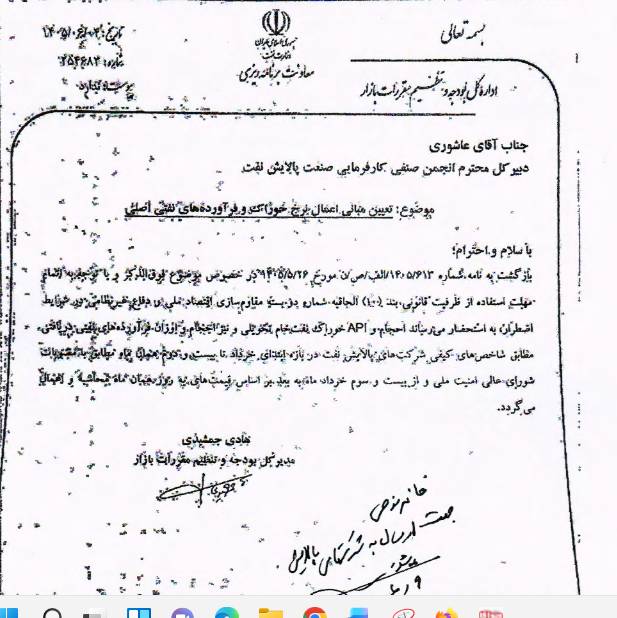 بسمه تعالی
جمهوری اسلامی ایران
وزارت نفت
معاونت برنامه ریزی
اداره کل بودجه و تنظیم مقررات بازار
تاریخ:
شماره:
پیوست: ندارد
جناب آقای عاشوری
دبیر کل محترم انجمن صنفی کارفرمایی صنعت پالایش نفت
موضوع: تعیین مبانی اعمال نرخ خوراک و فرآورده‌های نفتی اصلی
با سلام و احترام؛
بازگشت به نامه شماره در خصوص موضوع فوق‌الذکر و با توجه به
مهلت استفاده از ظرفیت قانونی بند الحاقیه شماره مقاوم‌سازی اقتصاد ملی و دفاع غیرنظامی در شرایط
اضطرار، به استحضار می‌رساند احجام و API خوراک نفت خام تحویلی و نیز احجام و اوزان فرآورده‌های نفتی دریافتی
مطابق شاخص‌های کیفی شرکت‌های پالایش نفت در بازه ابتدای خرداد تا بیست و دوم همان ماه مطابق با مصوبات
شورای عالی امنیت ملی و از بیست و سوم خرداد ماه به بعد بر اساس قیمت‌های به روز همان ماه محاسبه و اعمال
می‌گردد.
هادی جمشیدی
مدیر کل بودجه و تنظیم مقررات بازار
جهت ارسال به شرکتهای پالایش